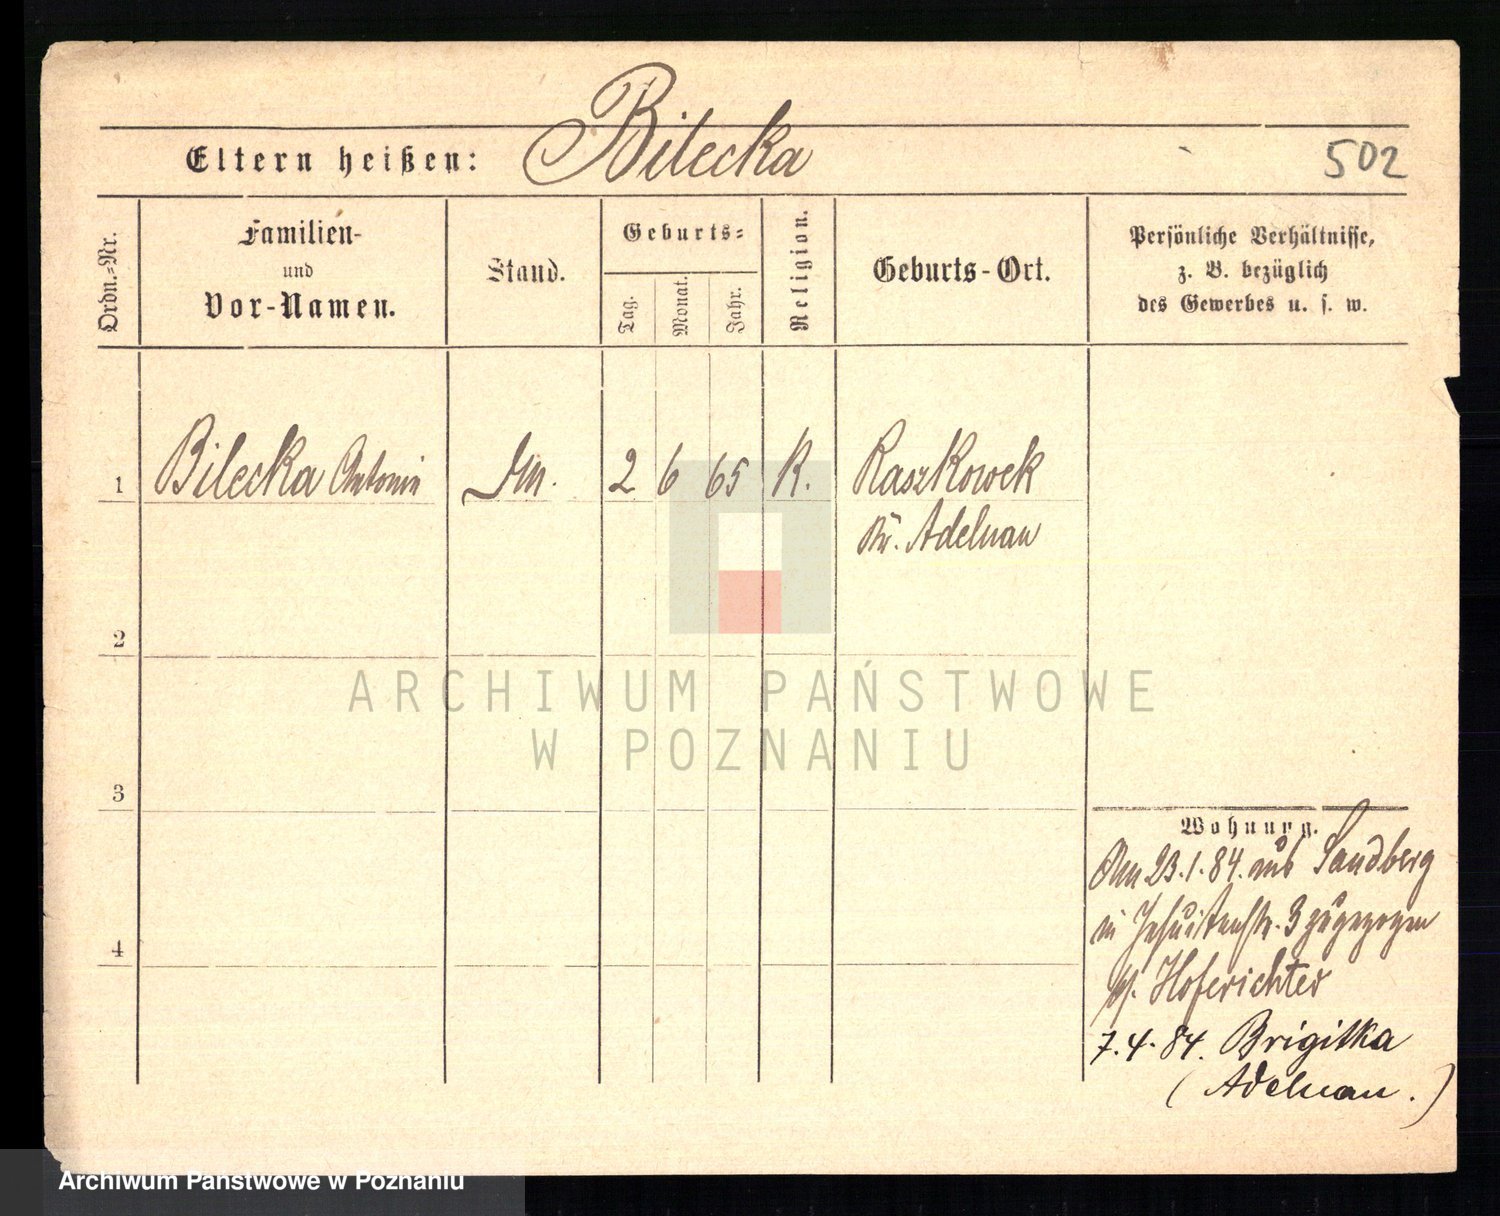 Bilecka
Eltern heißen:
502
Ordn.-Nr.
Familien-
und
Vor-Namen.
Stand.
Geburts-
Tag.
Monat.
Jahr.
Religion.
Geburts-Ort.
Persönliche Verhältnisse,
z. B. bezüglich
des Gewerbes u. s. w.
1 Bilecka Antonie 2 6 65 K. Raszkowek
Kr. Adelnau
2
3
4
Wohnung.
Am 23.1.84. aus Sandberg
in Jesuitenstr. 3 zugezogen
b/. Hoferichter
7.4.84. Brigitka
(Adelnau.)
ARCHIWUM PAŃSTWOWE
W POZNANIU
Archiwum Państwowe w Poznaniu